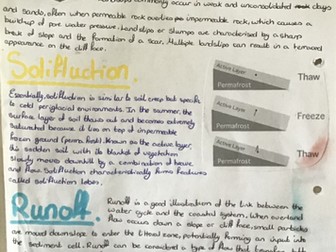 commonly occur in weak and unconsolidated clays
and sands, often when permeable rock overlies impermeable rock, which causes a
buildup of pore water pressure. Landslips or slumps are characterised by a sharp
break of slope and the formation of a scar. Multiple landslips can result in a terraced
appearance on the cliff face.
Solifluction.
Essentially, solifluction is similar to soil creep but specific
to cold periglacial environments. In the summer, the
surface layer of soil thaws out and becomes extremely
saturated because it lies on top of impermeable
frozen ground (permafrost). Known as the active layer,
this sodden soil with its blanket of vegetation
slowly moves downhill by a combination of heave
and flow. Solifluction characteristically forms features
called solifluction lobes.
Active Layer
Permafrost
Thaw
Active Layer
Permafrost
Freeze
Active Layer
Permafrost
Thaw
Runoff.
Runoff is a good illustration of the link between the
water cycle and the coastal system. When overland
flow occurs down a slope or cliff face, small particles
are moved downslope to enter the littoral zone, potentially forming an input into
the sediment cell. Runoff can be considered a type of flow that transfers both